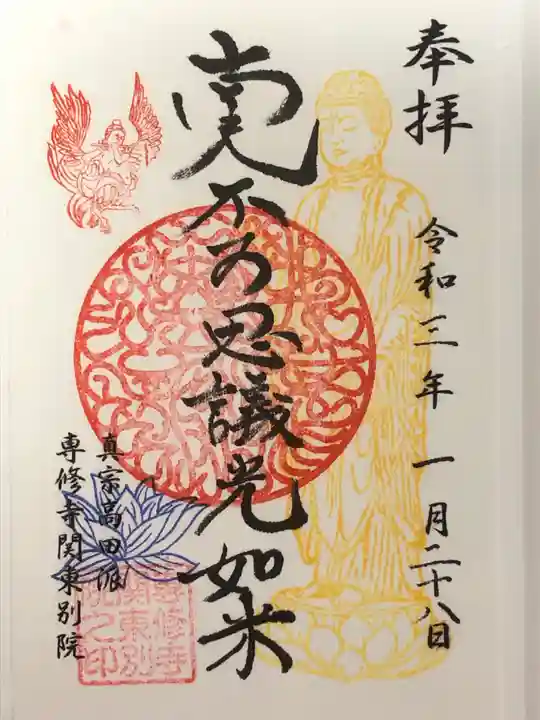 奉拝
令和三年 一月二十八日
南无不可思議光如来
真宗高田派
専修寺関東別院
専修寺
関東別
院之印